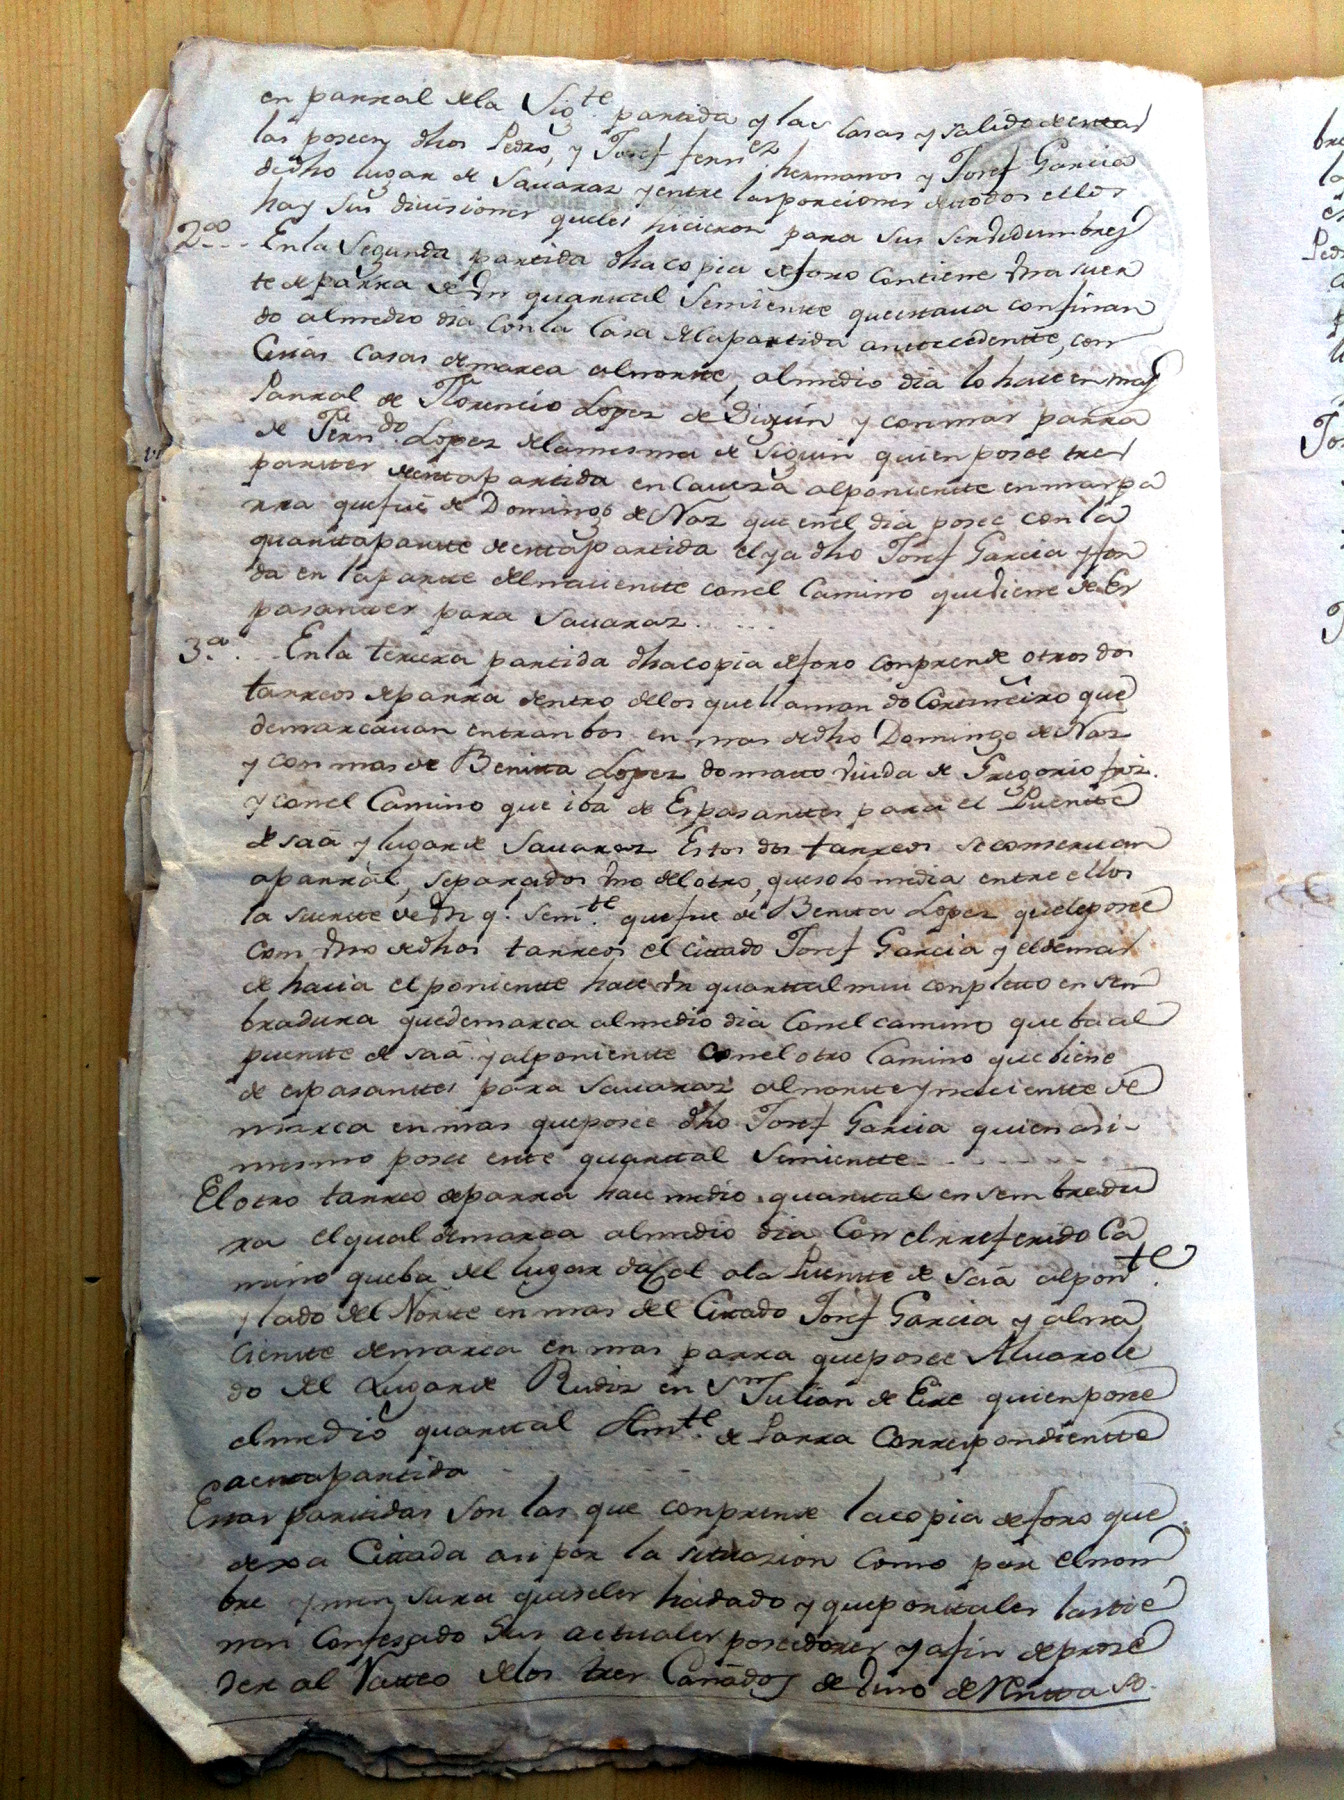 en parral dela Sigte. partida y las Casas y salido de estas
las poseen dhos Pedro, y Josef fernez. hermanos y Josef Garcia
dedho lugar de Savaraz y entre las porciones de todos ellos
hay sus divisiones que les hicieron para sus servidumbres
2a... En la Segunda partida dha copia de foro Contiene Una suer
te de parra de Un quartal Semiente que estava confinan
do al medio dia con la Casa de la partida antecedente, con
Casas de marca al norte, al medio dia lo hace en mas
Parral de Florencio Lopez de Siguin y con mas parra
de Ferndo. Lopez de la mesma de Siguin quien posee tres
partes de esta partida en Caveza al poniente en mas pa
rra que fue de Domingo de Naz que en el dia posee con la
quarta parte de esta partida el ya dho Josef Garcia y fon
da en la parte del naciente con el Camino que viene de Es
pasantes para Savaraz.....
3a... En la tercera partida dha copia de foro conprende otros dos
tarreos de parra dentro de los que llaman do Cortiñeiro que
demarcavan entranbos en mas de dho Domingo de Naz
y con mas de Benita Lopez do mato viuda de Gregorio frz.
y con el Camino que iba de Espasantes para el Puente
de saa y lugar de Savaraz Estos dos tarreos se conservan
aparral, separados Uno del otro, que solo media entre ellos
la suerte de Un q. Semte. que fue de Benita Lopez que le posee
con Uno de dhos tarreos el citado Josef Garcia y el demas
de hacia el poniente hace Un quartal mui conpleto en sem
bradura que demarca al medio dia Con el camino que ba al
puente de saa y al poniente Con el otro Camino que biene
de espasantes para Savaraz al norte y naciente de
marca en mas que posee dho Josef Garcia quien asi-
mesmo posee este quartal Semiente.....
El otro tarreo de parra hace medio quartal en sembradu
ra el qual demarca al medio dia Con el rreferido Ca
mino que ba del lugar da Cal ala Puente de Saa al ponte.
y lado del Norte en mas del Citado Josef Garcia y al na
ciente demarca en mas parra que posee Alvaro le
do del Lugar de Rudiz en Sn Julian de Eire quien posee
el medio quartal Smte. de Parra Correspondiente
a esta partida
Estas partidas son las que conprende la copia de foro que
dexa Citada asi por la situazion Como por el nom
bre y mensura que se les ha dado y que por tales las tie
nen Confesado sus actuales poseedores y a fin de proze
der al Rateo de los tres Cañados de Vino de Renta